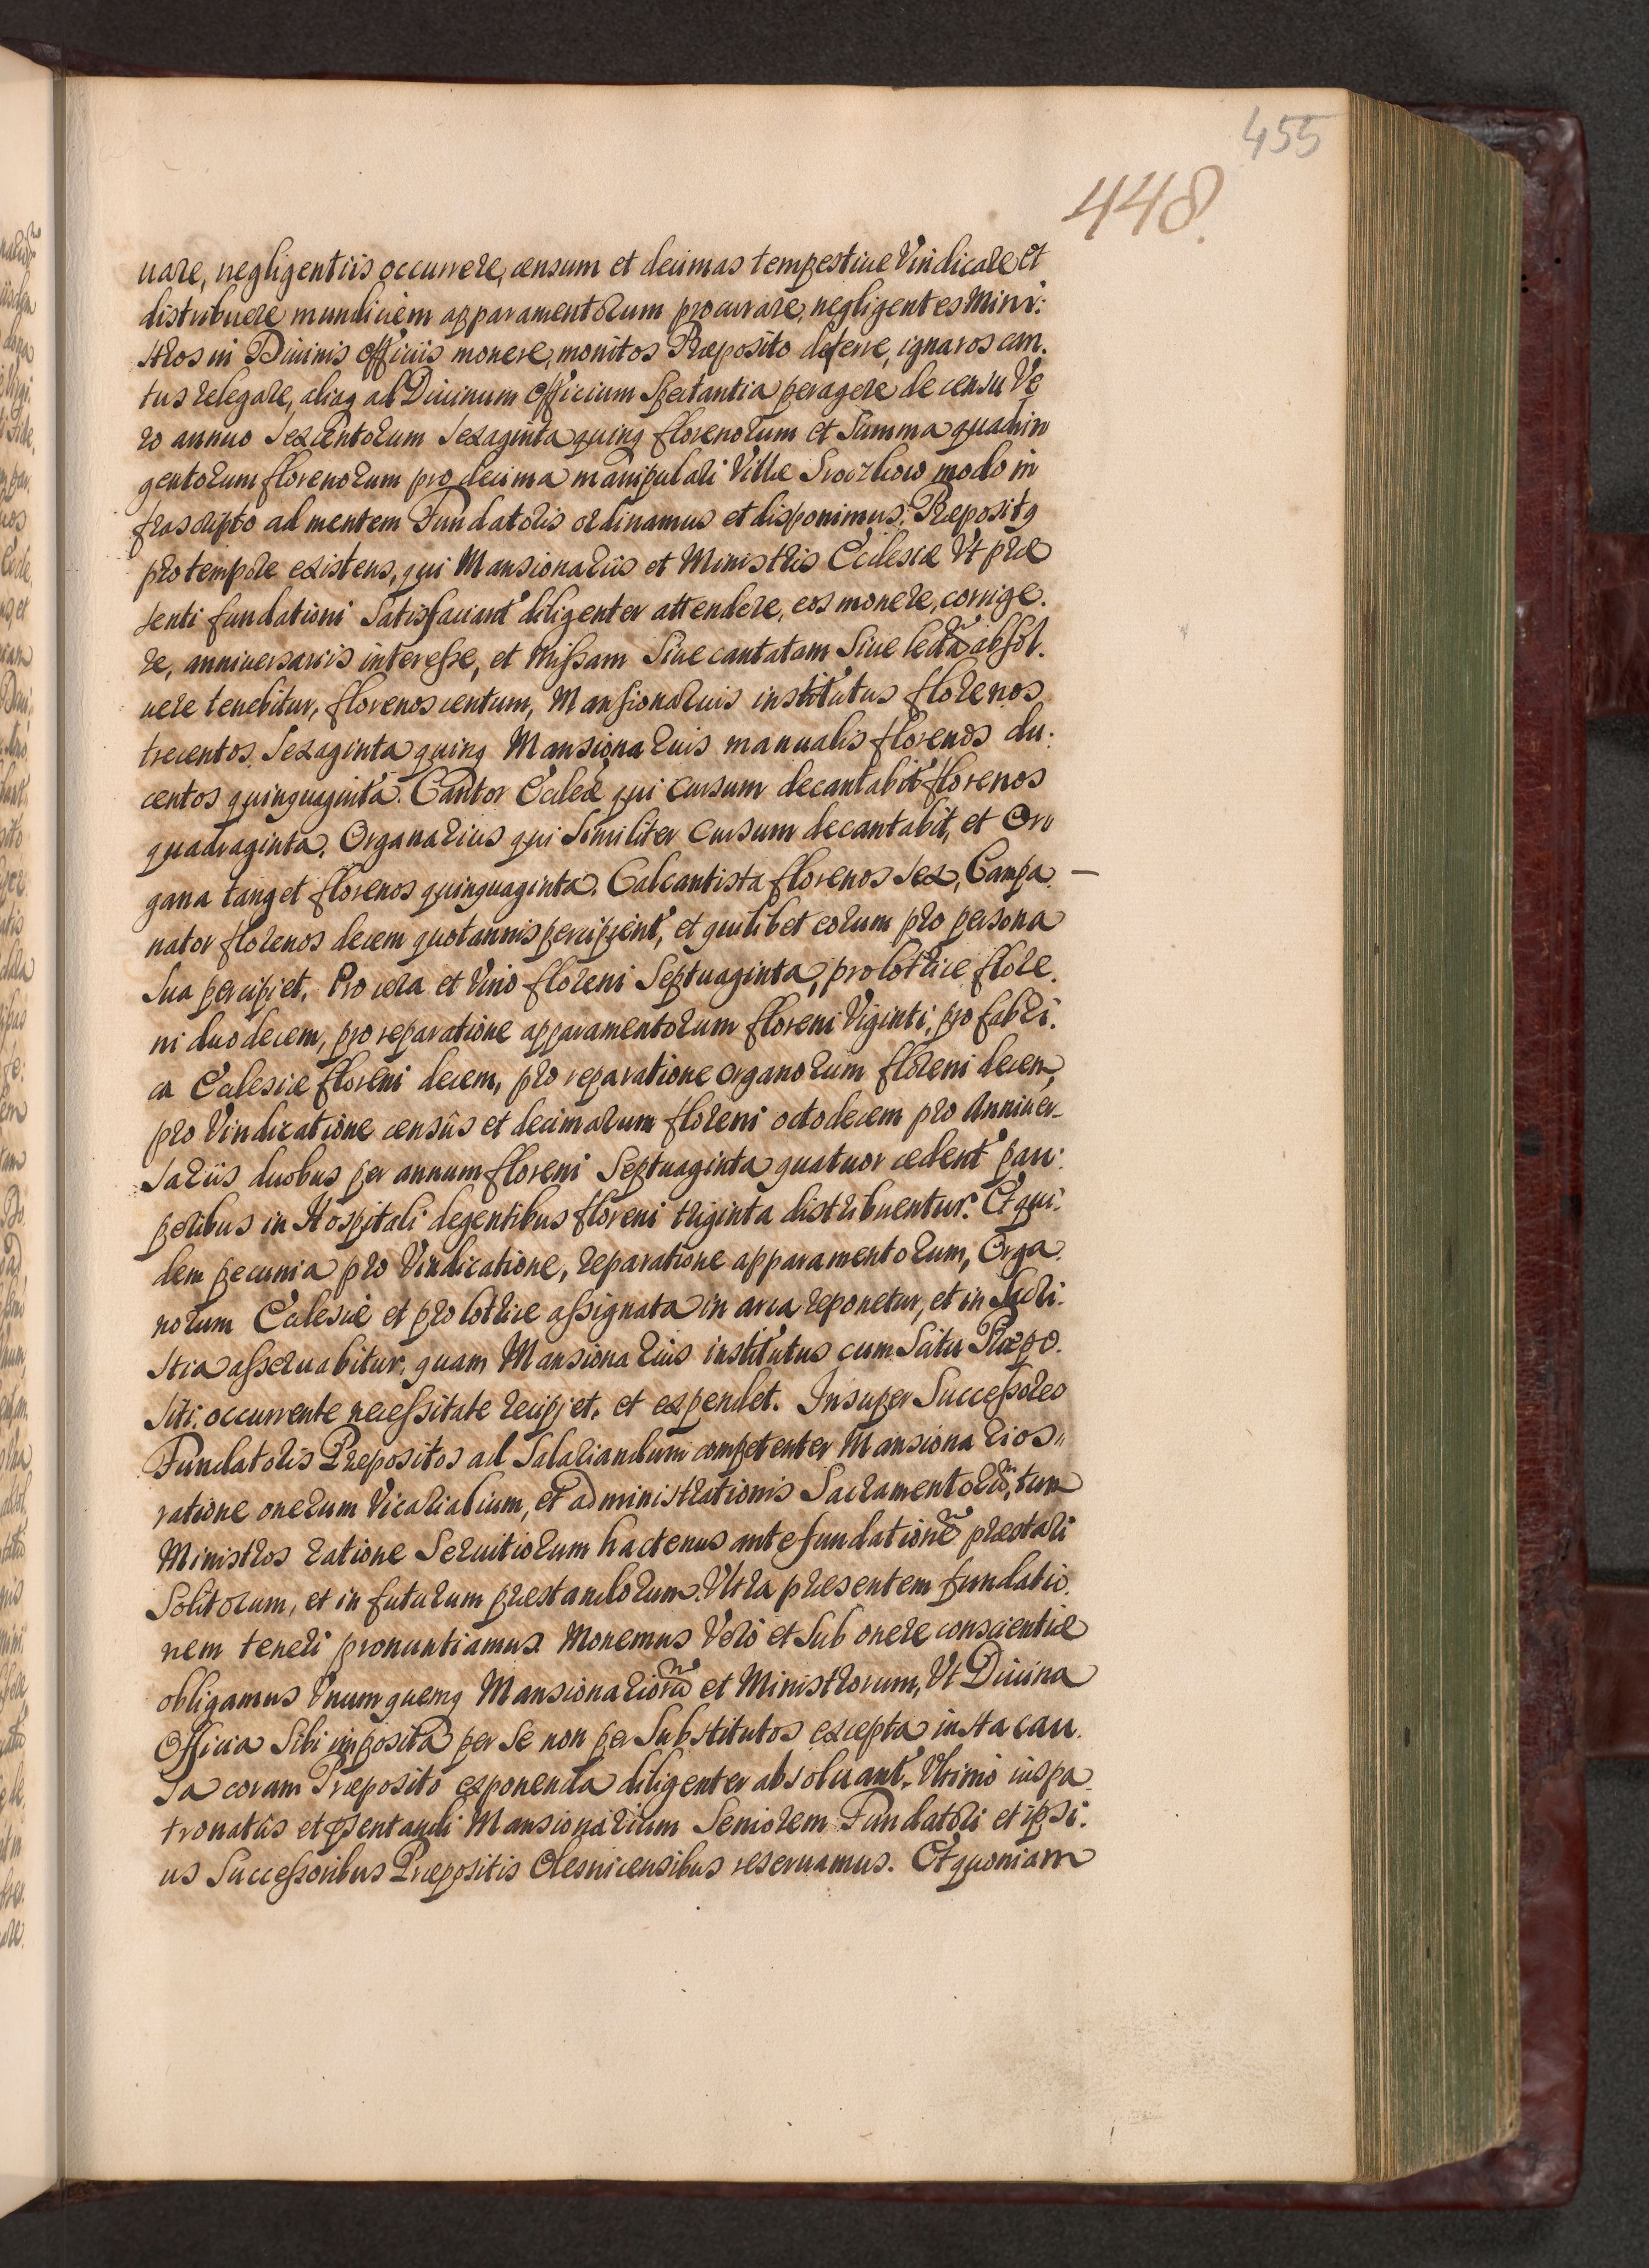 455
448.
uare, negligentiis occurrere, censum et decimas tempestiue Vindicare et
distribuere mundiciem apparamentorum procurare, negligentes Mini:
stros in Diuinis officiis monere, monitos Præposito deferre, ignaros can.
tus relegare, aliaq ad Diuinum officium Spectantia peragere de censu Ve
ro annuo Sexcentorum Sexaginta quinq florenorum et Summa quadrin
gentorum florenorum pro decima manipulari Villæ modo in
frascripto ad mentem Fundatoris ordinamus et disponimus. Præpositq
pro tempore existens, qui Mansionariis et Ministris Ecclesiæ Vt præ
senti fundationi Satisfaciant diligenter attendere, eos monere, corrige.
re, anniuersariis interesse, et Missam Siue cantatam Siue lectã absol.
uere tenebitur, florenos centum, Mansionarius institutus florenos
trecentos Sexaginta quinq Mansionarius manualis florenos du.
centos quinquaginta. Cantor Eccleæ qui cursum decantabit florenos
quadraginta. Organarius qui Similiter cursum decantabit, et Or
gana tanget florenos quinquaginta. Calcantista florenos Sex, Campa.
nator florenos decem quotannis percipient, et quilibet eorum pro persona
Sua percipiet. Pro cera et Vino floreni Septuaginta, pro lotrice flore.
ni duodecem, pro reparatione apparamentorum floreni Viginti, pro fabri.
ca Ecclesiæ floreni decem, pro reparatione organorum floreni decem,
pro Vindicatione censûs et decimarum floreni octodecem pro Anniuer-
sariis duobus per annum floreni Septuaginta quatuor cedent pau:
peribus in Hospitali degentibus floreni triginta distribuentur. Et qui.
dem pecunia pro Vindicatione, reparatione apparamentorum, Orga.
norum Ecclesiæ et pro lotrice assignata in arca reponetur, et in Sacri.
stia asseruabitur, quam Mansionarius institutus cum Scitu Præpo.
siti, occurrente necessitate recipiet, et expendet. Insuper Successores
Fundatoris Præpositos ad Salariandum competenter Mansionarios"
ratione onerum Vicarialium, et administrationis Sacramentorũ, tum
Ministros ratione Seruitiorum hactenus ante fundationẽ præstari
Solitorum, et in futurum præstandorum Vltra præsentem fundatio.
nem teneri pronuntiamus. Monemus Vero et Sub onere conscientiæ
obligamus Vnumquemq Mansionariorũ et Ministrorum, Vt Diuina
Officia Sibi imposita per Se non per Substitutos excepta iusta cau.
sa coram Præposito exponenda diligenter absoluant. Vltimo iuspa.
tronatûs et pñtandi Mansionarium Seniorem Fundatori et ipsi.
us Successoribus Præpositis Olesnicensibus reseruamus. Et quoniam